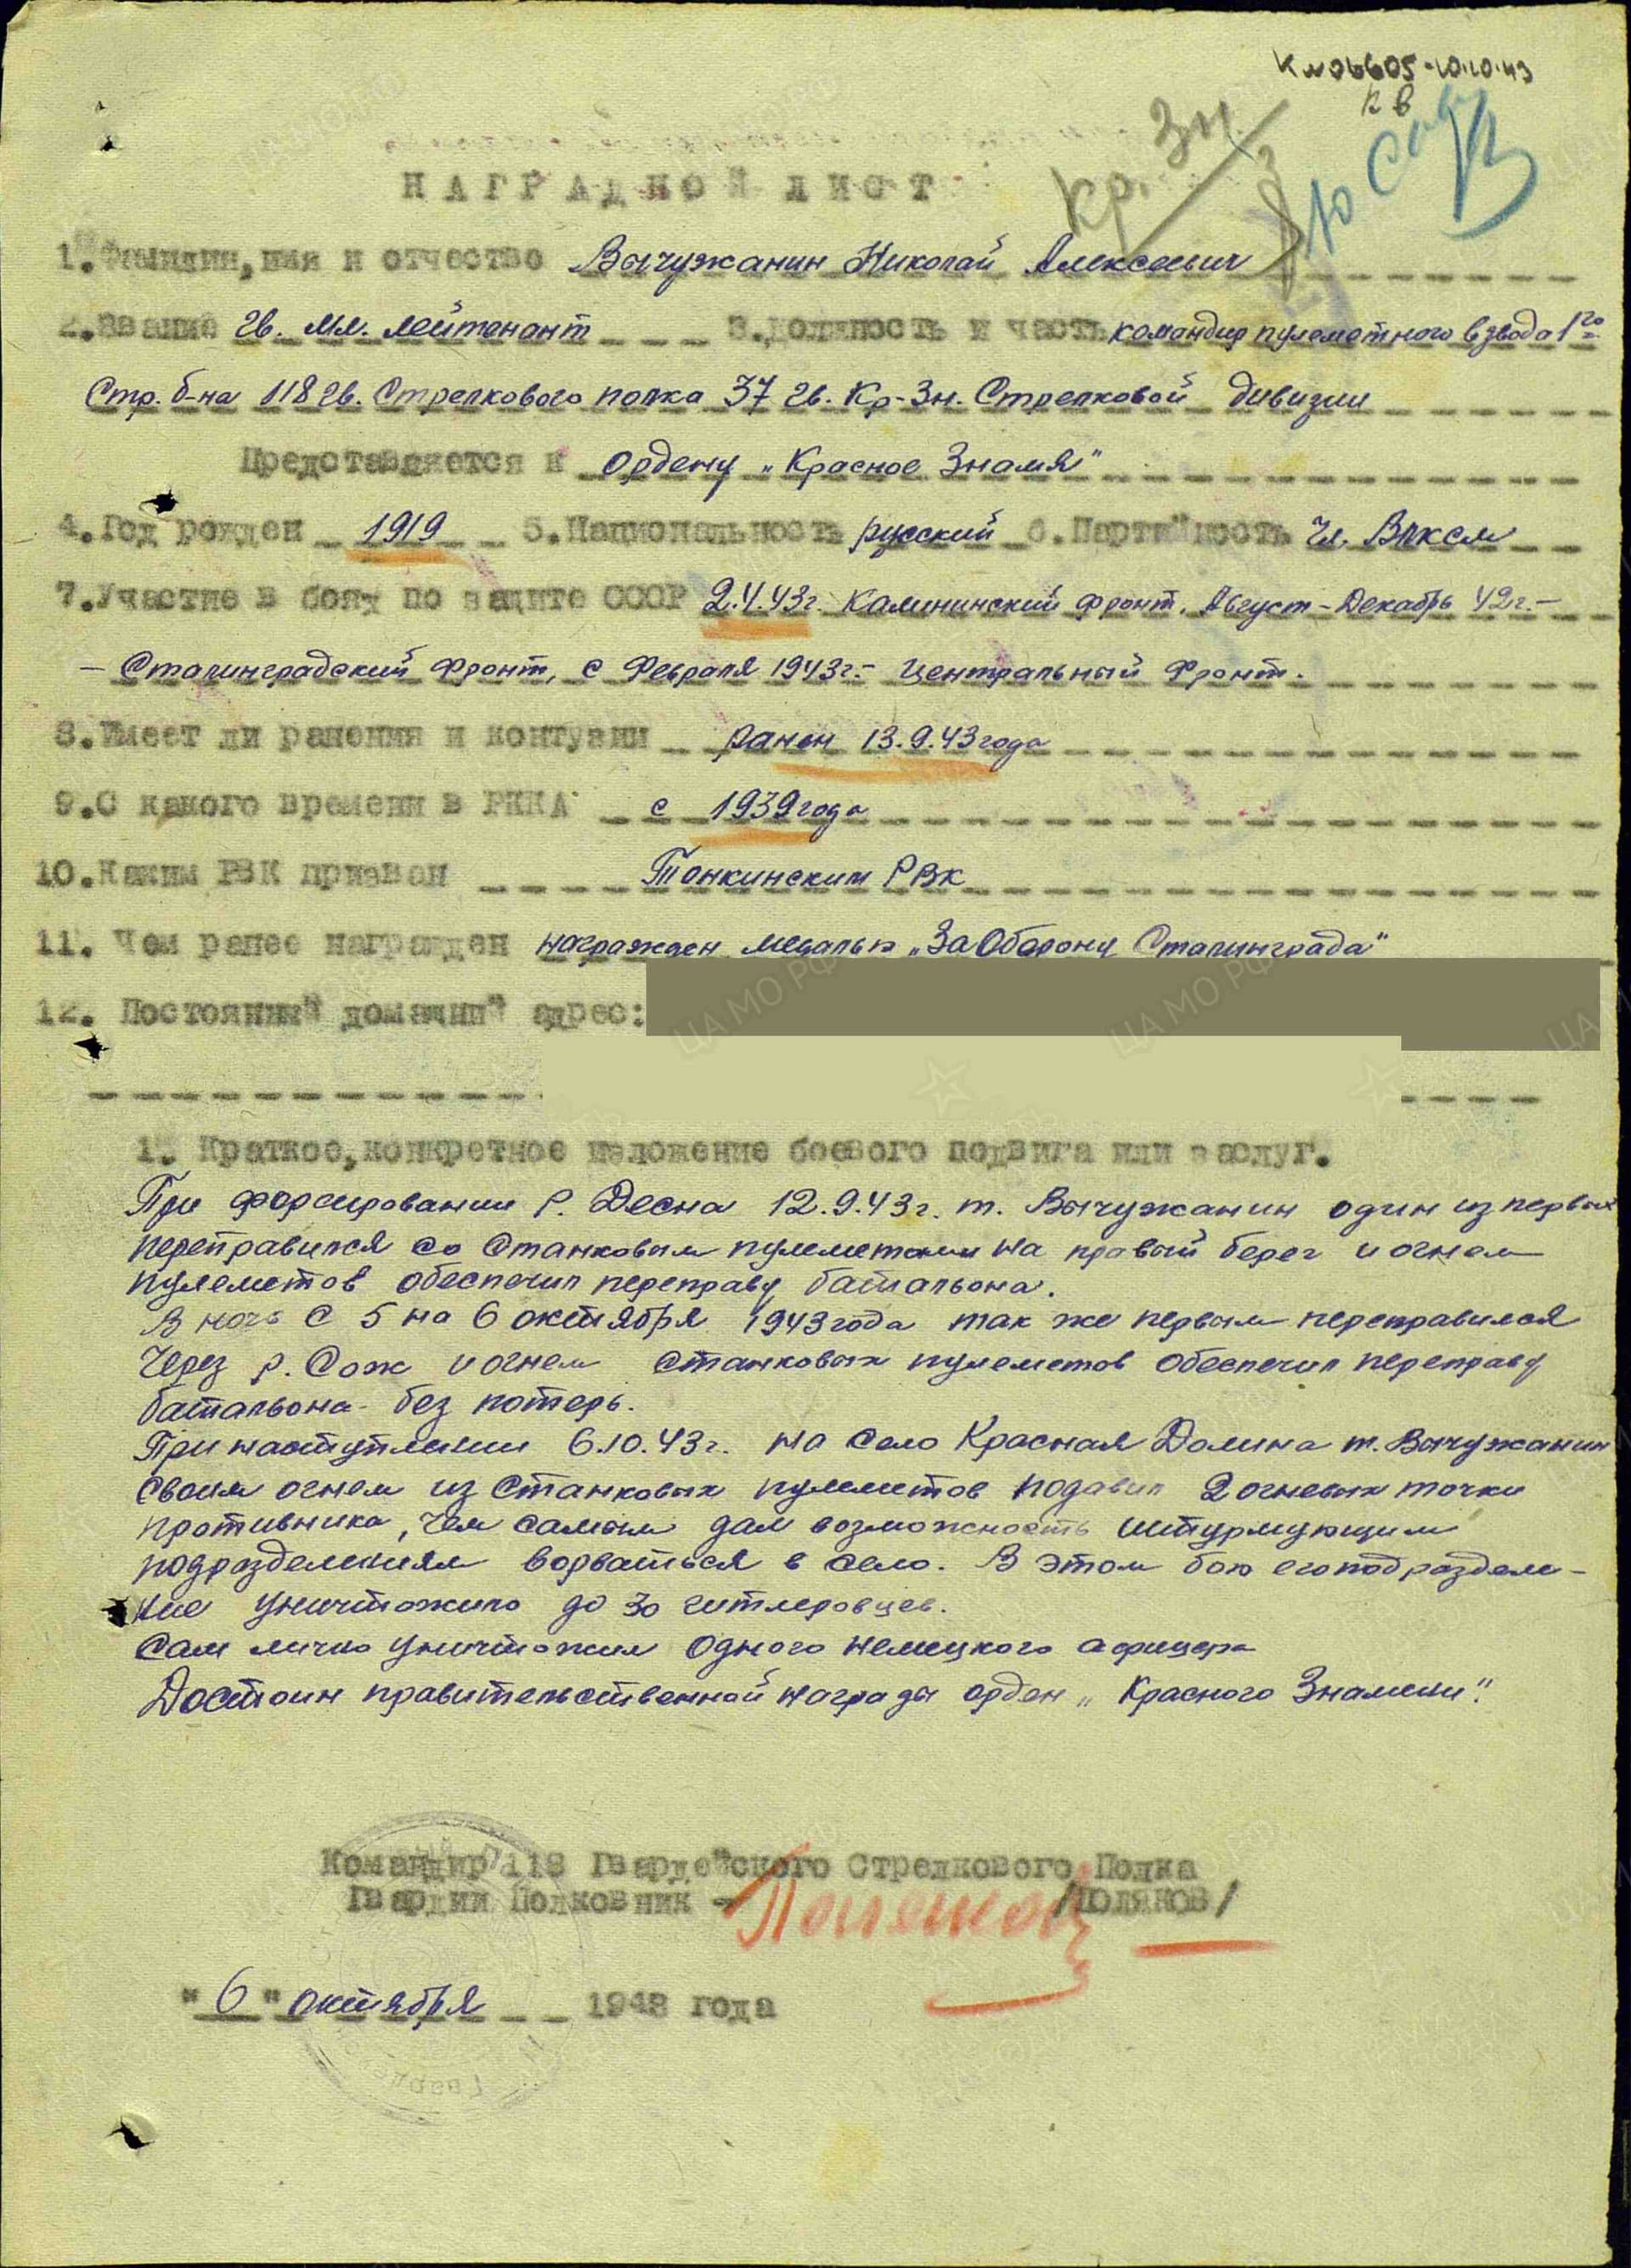 К №06605-10.10.43
КВ
Кр. Зн.
НАГРАДНОЙ ЛИСТ
1. Фамилия, имя и отчество Вычужанин Николай Алексеевич
2. Звание гв. мл. лейтенант 3. Должность и часть командир пулеметного взвода 1го
Стр. б-на 118 гв. Стрелкового полка 37 гв. Кр-Зн. Стрелковой дивизии
Представляется к ордену „Красное Знамя"
4. Год рожден 1919 5. Национальность русский 6. Партийность Чл. ВЛКСМ
7. Участие в боях по защите СССР 2.4.43г. Калининский фронт, Август-Декабрь 42г.-
- Сталинградский Фронт, с Февраля 1943г.- Центральный Фронт.
8. Имеет ли ранения и контузии ранен 13.9.43 года
9. С какого времени в РККА с 1939 года
10. Каким РВК призван Тонкинским РВК
11. Чем ранее награжден награжден медалью „За Оборону Сталинграда"
12. Постоянный домашний адрес:
1. Краткое, конкретное изложение боевого подвига или заслуг.
При форсировании р. Десна 12.9.43г. т. Вычужанин один из первых
переправился со станковым пулеметами на правый берег и огнем
пулеметов обеспечил переправу батальона.
В ночь с 5 на 6 октября 1943 года так же первым переправился
через р. Сож и огнем станковых пулеметов обеспечил переправу
батальона без потерь.
При наступлении 6.10.43г. на село Красная Долина т. Вычужанин
своим огнем из станковых пулеметов подавил 2 огневых точки
противника, чем самым дал возможность штурмующим
подразделениям ворваться в село. В этом бою его подразделе-
ние уничтожило до 30 гитлеровцев.
Сам лично уничтожил одного немецкого афицера
Достоин правительственной награды орден „Красного Знамени".
Командир 118 Гвардейского Стрелкового Полка
Гвардии Полковник - /ПОЛЯКОВ/
"6" октября 1943 года